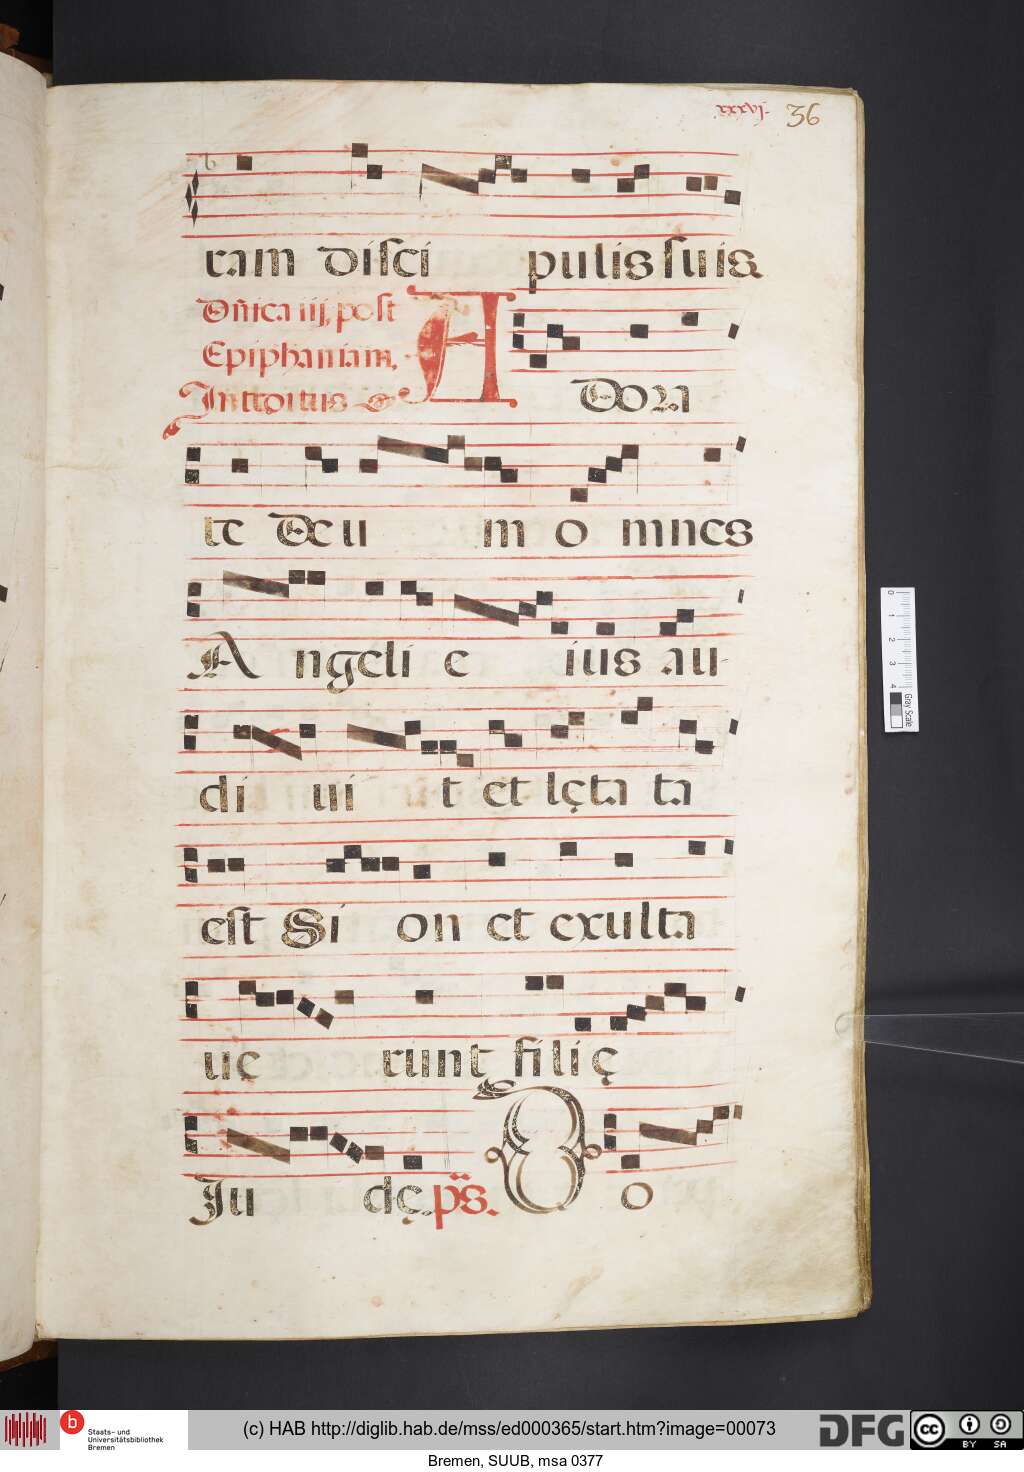 xxxvj. 36
ram disci pulis suis.
Dñica iij, post
Epiphaniam,
Introitus
A Dora
te Deu m o mnes
Angeli e ius au
di ui t et lęta ta
est Si on et exulta
uę runt fili ę
Ju dę. ps. D o
0 1 2 3 4
Gray Scale
b Staats- und
Universitätsbibliothek
Bremen
(c) HAB http://diglib.hab.de/mss/ed000365/start.htm?image=00073
DFG
cc BY SA
Bremen, SUUB, msa 0377